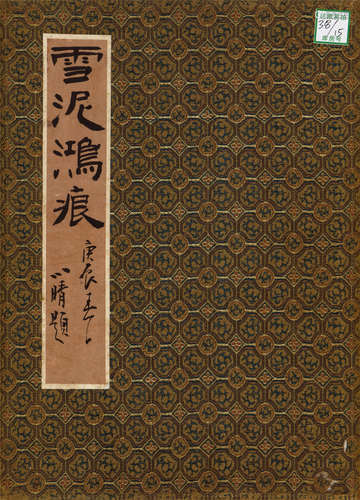 雪泥鴻痕
庚辰春
小晴題
38/15